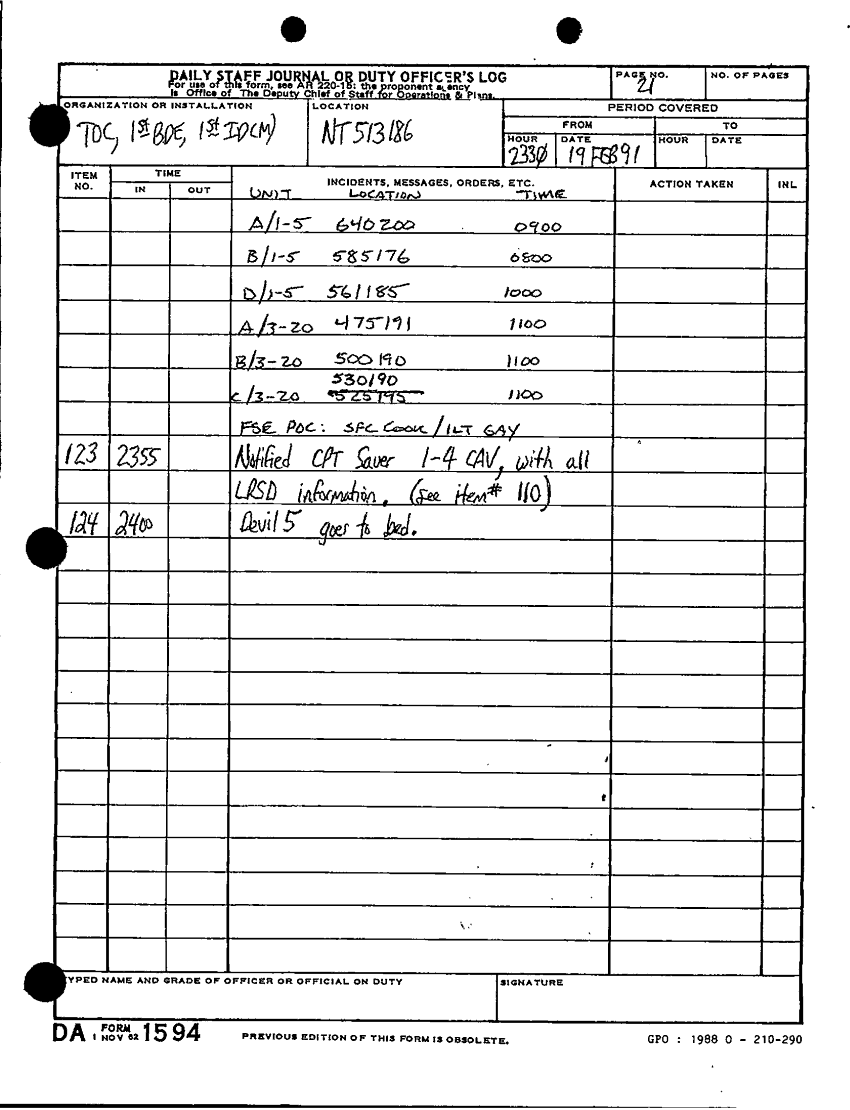 DAILY STAFF JOURNAL OR DUTY OFFICER'S LOG
For use of this form, see AR 220-15; the proponent agency
is Office of The Deputy Chief of Staff for Operations & Plans.
PAGE NO.
21
NO. OF PAGES
ORGANIZATION OR INSTALLATION
TOC, 1st BDE, 1st ID(M)
LOCATION
NT 513186
PERIOD COVERED
FROM
TO
HOUR
2330
DATE
19 FEB 91
HOUR
DATE
ITEM NO.
TIME
IN
OUT
INCIDENTS, MESSAGES, ORDERS, ETC.
ACTION TAKEN
INL
UNIT LOCATION TIME
A/1-5 640200 0900
B/1-5 585176 0800
D/1-5 561185 1000
A/3-20 475191 1100
B/3-20 500190 1100
530190
C/3-20 525195 1100
FSE POC: SFC Cook / 1LT GAY
123 2355 Notified CPT Saver 1-4 CAV, with all
LRSD information. (see item# 110)
124 2400 Devil 5 goes to bed.
TYPED NAME AND GRADE OF OFFICER OR OFFICIAL ON DUTY
SIGNATURE
DA FORM 1 NOV 62 1594
PREVIOUS EDITION OF THIS FORM IS OBSOLETE.
GPO : 1988 O - 210-290